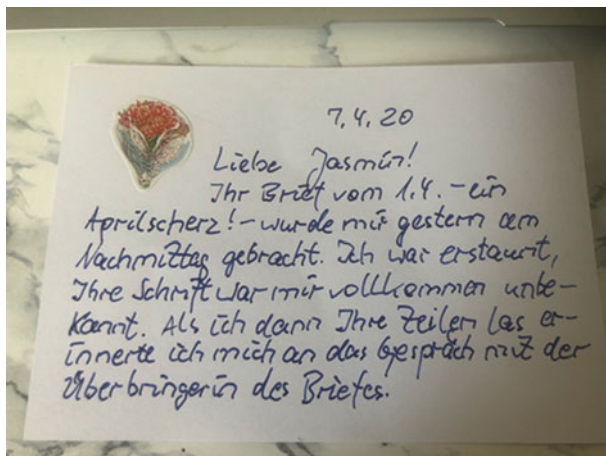 7.4.20
Liebe Jasmin!
Ihr Brief vom 1.4. - ein
Aprilscherz! - wurde mir gestern am
Nachmittag gebracht. Ich war erstaunt,
Ihre Schrift war mir vollkommen unbe-
kannt. Als ich dann Ihre Zeilen las er-
innerte ich mich an das Gespräch mit der
Überbringerin des Briefes.